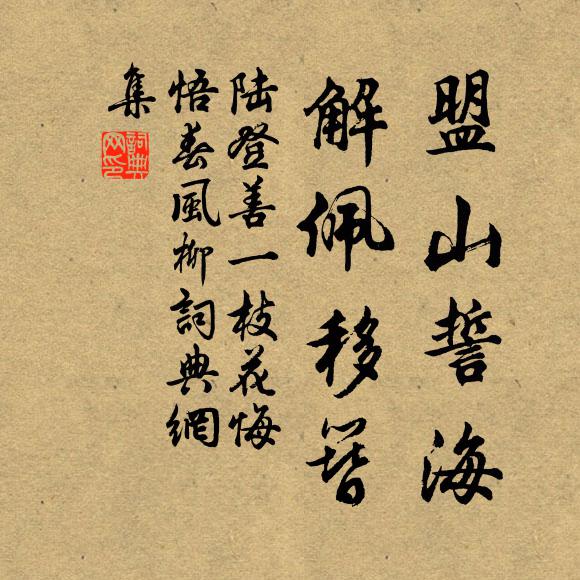 盟山誓海
解佩移簪
陆登善一枝花悔
悟春風柳詞典網
集
詞典
网印